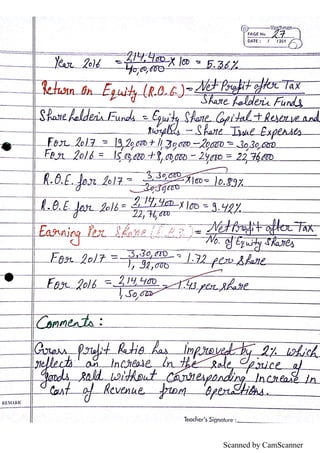 Youthman
PAGE No. 27
DATE: / /201
Year 2016 = 2,14,400 / 40,00,000 X 100 = 5.36%
Return On Equity (R.O.E.) = Net Profit after Tax / Share holder's Funds
Share holder's Funds = Equity Share Capital + Reserve and
surplus - Share Issue Expenses
For 2017 = 19,20,000 + 11,30,000 - 20,000 = 30,30,000
For 2016 = 15,00,000 + 8,00,000 - 24,000 = 22,76,000
R.O.E. for 2017 = 3,30,000 / 30,30,000 X100 = 10.89%
R.O.E. for 2016 = 2,14,400 / 22,76,000 X 100 = 9.42%
Earning Per Share (E.P.S) = Net Profit after Tax / No. of Equity Shares
For 2017 = 3,30,000 / 1,92,000 = 1.72 per share
For 2016 = 2,14,400 / 1,50,000 = 1.43 per share
Comments :
Gross profit Ratio has improved by 2% which
reflects an Increase in the sale price of
goods sold without corresponding Increase in
Cost of Revenue from operations.
REMARK
Teacher's Signature :
Scanned by CamScanner